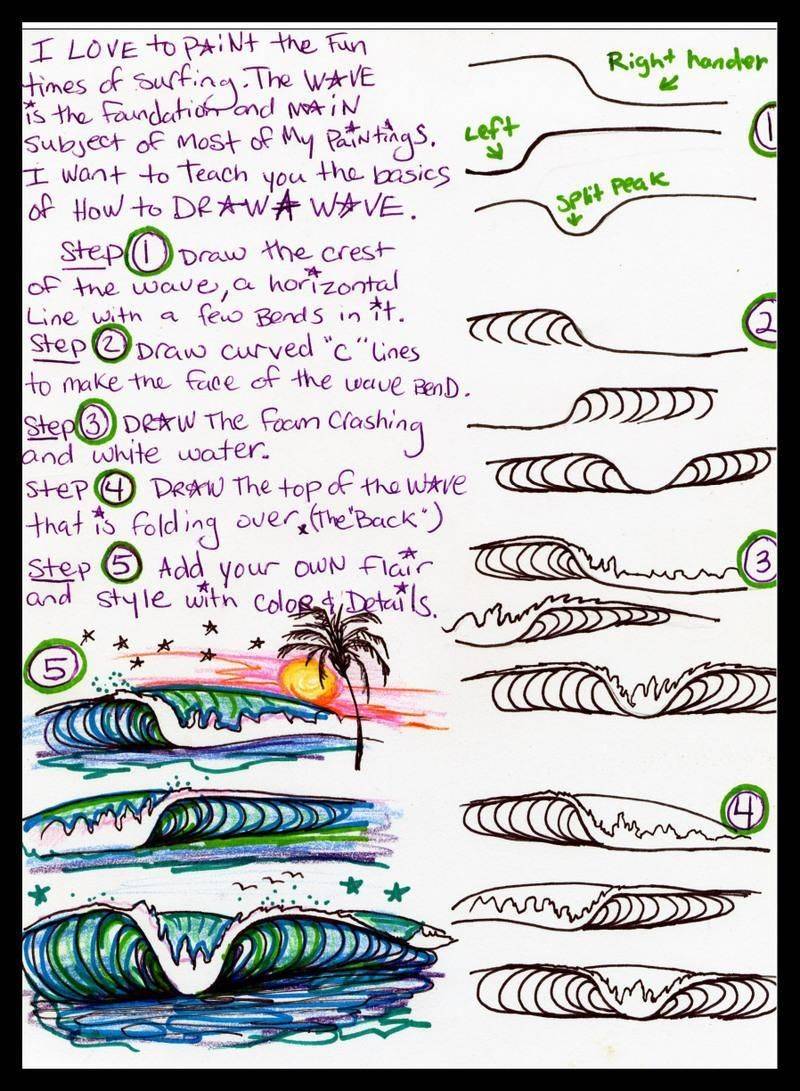 I LOVE to PAiNt the Fun
times of Surfing. The WAVE
is the foundation and MAiN
Subject of Most of My PaiNtiNgs.
I want to Teach you the basics
of How to DRAW A WAVE.
Step 1 Draw the crest
of the wave, a horizontal
Line with a few Bends in it.
Step 2 Draw curved "C" lines
to make the face of the wave BenD.
Step 3 DRAW The foam Crashing
and white water.
Step 4 DRAW The top of the WAVE
that is folding over. (The "Back")
Step 5 Add your own flair
and style with Color & Details.
Right hander
1
Left
Split Peak
2
3
4
5